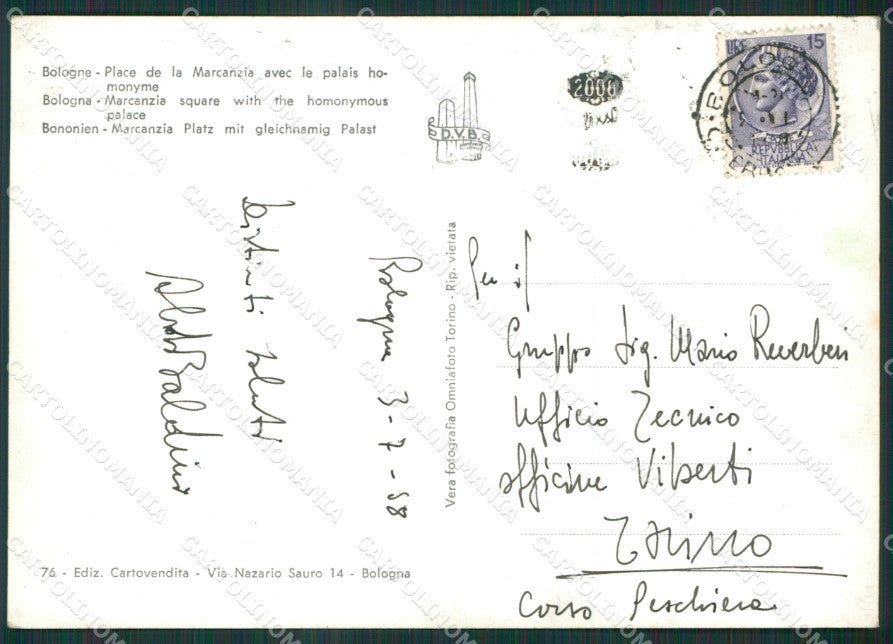 Bologne - Place de la Marcanzia avec le palais ho-
monyme
Bologna - Marcanzia square with the homonymous
palace
Bononien - Marcanzia Platz mit gleichnamig Palast
D.V.B.
2000
LIRE 15
REPVBBLICA
ITALIANA
BOLOGNA
Distinti saluti
Baldini
Bologna 3-7-58
Vera fotografia Omniafoto Torino - Rip. vietata
Gruppo Sig. Mario Reverberi
Ufficio Tecnico
Officine Viberti
Torino
Corso Peschiera
76 - Ediz. Cartovendita - Via Nazario Sauro 14 - Bologna
CARTOLINOMANIA